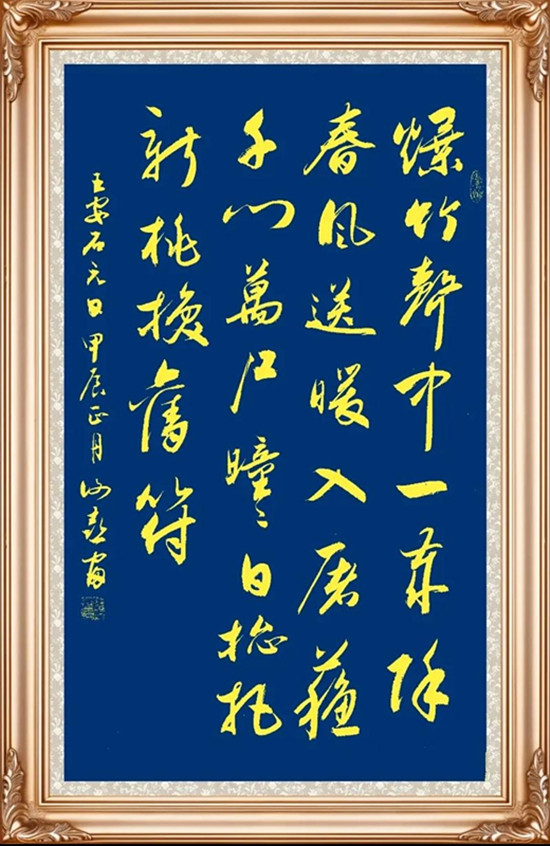 爆竹聲中一歲除
春风送暖入屠蘇
千门萬户曈々日總把
新桃换舊符
王安石元日甲辰正月